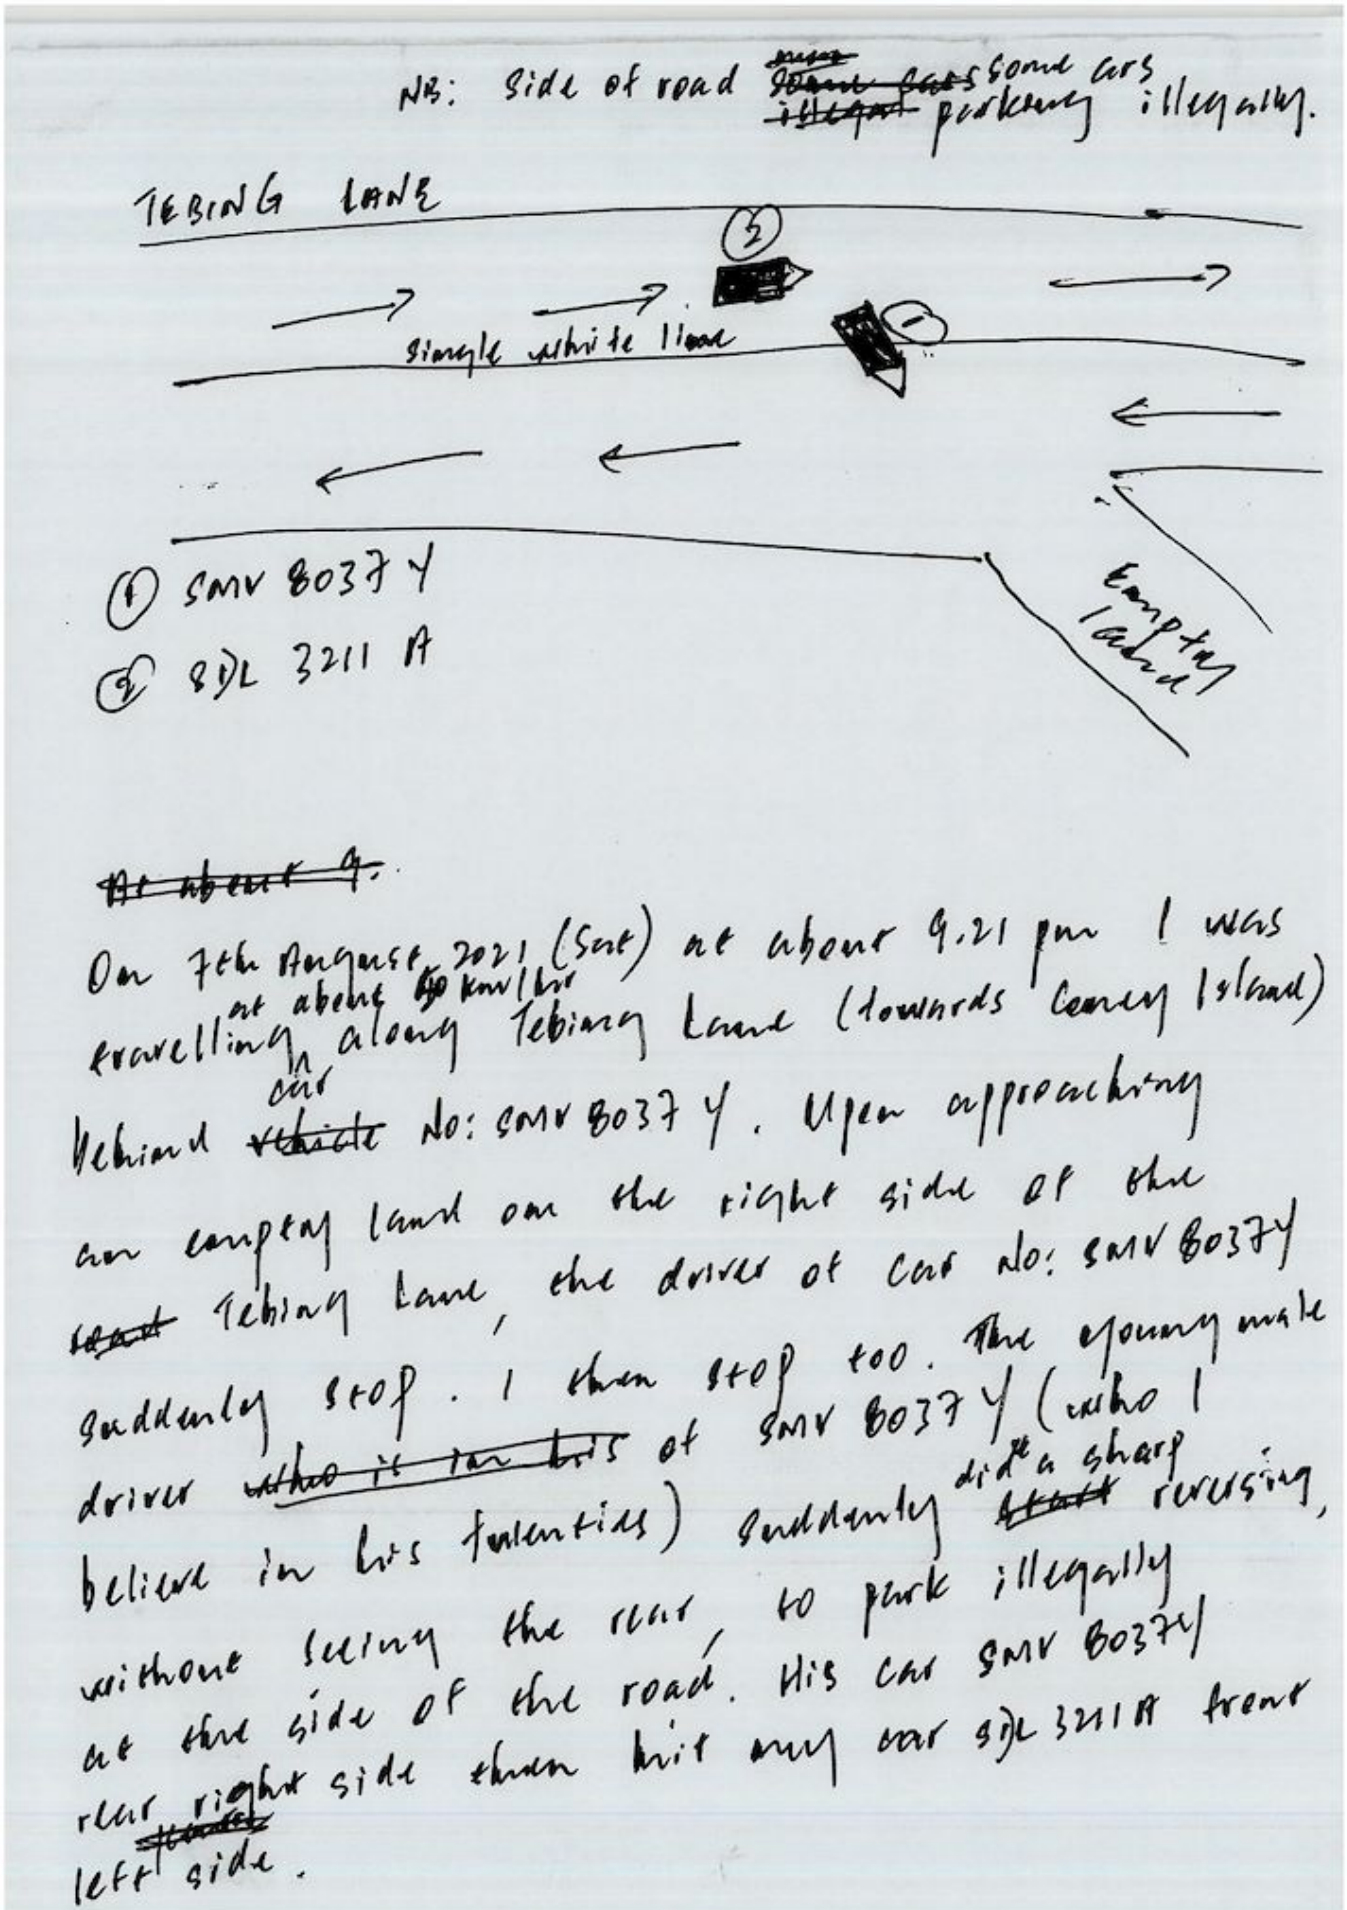 NB: Side of road some cars
parking illegally.
TEBING LANE
2
1
single white line
① SMV 8037 Y
② SDL 3211 A
Empty
land
At about 9.
On 7th August, 2021 (Sat) at about 9.21 pm I was
at about km/hr
travelling along Tebing Lane (towards Coney Island)
car
behind vehicle No: SMV 8037 Y. Upon approaching
an empty land on the right side of the
road Tebing Lane, the driver of car No: SMV 8037Y
suddenly stop. I then stop too. The young male
driver who is in his of SMV 8037 Y (who I
did a sharp
believe in his twenties) suddenly start reversing,
without seeing the rear, to park illegally
at the side of the road. His car SMV 8037Y
rear right side then hit my car SDL 3211A front
left side.